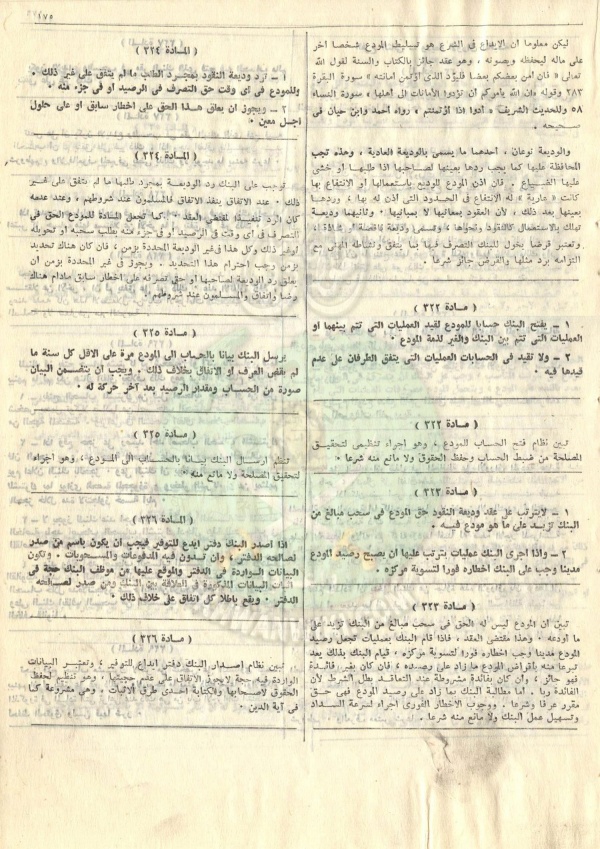 ١٧٥
ليكن معلوما ان الايداع فى الشرع هو تسليط المودع شخصا آخر
على ماله ليحفظه ويصونه ، وهو عقد جائز بالكتاب والسنة لقول الله
تعالى « فان أمن بعضكم بعضا فليؤد الذى أؤتمن أمانته » سورة البقرة
٢٨٣ وقوله « ان الله يأمركم أن تؤدوا الأمانات الى أهلها » سورة النساء
٥٨ وللحديث الشريف « أدوا اذا أؤتمنتم » رواه أحمد وابن حيان فى
صحيحه .
والوديعة نوعان ، أحدهما ما يسمى بالوديعة العادية ، وهذه تجب
المحافظة عليها كما يجب ردها بعينها لصاحبها اذا طلبها أو خشى
عليها الضياع . فان أذن المودع للوديع باستعمالها أو الانتفاع بها
كانت « عارية » له الانتفاع فى الحدود التى أذن له بها ، وردها
بعينها بعد ذلك ، لأن العقود بمعانيها لا بمبانيها . وثانيهما وديعة
تهلك بالاستعمال كالنقود ونحوها ، وتسمى وديعة ناقصة أو شاذة ،
وتعتبر قرضا يخول للبنك التصرف فيها بما يتفق ونشاطه المهنى مع
التزامه برد مثلها والقرض جائز شرعا .
( مادة ٣٢٢ )
١ – يفتح البنك حسابا للمودع لقيد العمليات التى تتم بينهما أو
العمليات التى تتم بين البنك والغير لذمة المودع .
٢ – ولا تقيد فى الحسابات العمليات التى يتفق الطرفان على عدم
قيدها فيه .
( مادة ٣٢٢ )
تبين نظام فتح الحساب للمودع ، وهو اجراء تنظيمى لتحقيق
المصلحة من ضبط الحساب وحفظ الحقوق ولا مانع منه شرعا .
( مادة ٣٢٣ )
١ – لايترتب على عقد وديعة النقود حق المودع فى سحب مبالغ من
البنك تزيد على ما هو مودع فيه .
٢ – واذا أجرى البنك عمليات يترتب عليها أن يصبح رصيد المودع
مدينا وجب على البنك اخطاره فورا لتسوية مركزه .
( مادة ٣٢٣ )
تبين أن المودع ليس له الحق فى سحب مبالغ من البنك تزيد على
ما أودعه . وهذا مقتضى العقد ، فاذا قام البنك بعمليات تجعل رصيد
المودع مدينا وجب اخطاره فورا لتسوية مركزه . قيام البنك بذلك يعد
تبرعا منه باقراض المودع ما زاد على رصيده ، فان كان بغير فائدة
فهو جائز ، وان كان بفائدة مشروطة عند التعاقد بطل الشرط لأن
الفائدة ربا . أما مطالبة البنك بما زاد على رصيد المودع فهى حق
مقرر عرفا وشرعا . ووجوب الاخطار الفورى اجراء لسرعة السداد
وتسهيل عمل البنك ولا مانع منه شرعا .
( المادة ٣٢٤ )
١ – ترد وديعة النقود بمجرد الطلب ما لم يتفق على غير ذلك .
وللمودع فى أى وقت حق التصرف فى الرصيد أو فى جزء منه .
٢ – ويجوز أن يعلق هذا الحق على اخطار سابق أو على حلول
أجل معين .
( المادة ٣٢٤ )
توجب على البنك رد الوديعة بمجرد طلبها ما لم يتفق على غير
ذلك . عند الاتفاق ينفذ الاتفاق فالمسلمون عند شروطهم ، وعند عدمه
كان الرد تنفيذا لمقتضى العقد . كما تجعل المادة للمودع الحق فى
التصرف فى أى وقت فى الرصيد أو فى جزء منه بطلب سحبه أو تحويله
أو غير ذلك وكل هذا فى غير الوديعة المحددة بزمن ، فان كان هناك تحديد
بزمن وجب احترام هذا التحديد . ويجوز فى غير المحددة بزمن أن
يعلق رد الوديعة لصاحبها أو حق تصرفه على اخطار سابق مادام هناك
رضا واتفاق والمسلمون عند شروطهم .
( مادة ٣٢٥ )
يرسل البنك بيانا بالحساب الى المودع مرة على الأقل كل سنة ما
لم يقض العرف أو الاتفاق بخلاف ذلك . ويجب أن يتضمن البيان
صورة من الحساب ومقدار الرصيد بعد آخر حركة له .
( مادة ٣٢٥ )
تنظم ارسال البنك بيانا بالحساب الى المودع ، وهو اجراء
لتحقيق المصلحة ولا مانع منه .
( المادة ٣٢٦ )
اذا أصدر البنك دفتر ايداع للتوفير فيجب أن يكون باسم من صدر
لصالحه الدفتر ، وان تدون فيه المدفوعات والمسحوبات . وتكون
البيانات الواردة فى الدفتر والموقع عليها من موظف البنك حجة فى
اثبات البيانات المذكورة فى العلاقة بين البنك ومن صدر لصالحه
الدفتر . ويقع باطلا كل اتفاق على خلاف ذلك .
( مادة ٣٢٦ )
تبين نظام اصدار البنك دفتر ايداع للتوفير ، وتعتبر البيانات
الواردة فيه حجة لايجوز الاتفاق على عدم حجيتها ، وهو تنظيم لحفظ
الحقوق لأصحابها والكتابة احدى طرق الاثبات . وهى مشروعة كما
فى آية الدين .